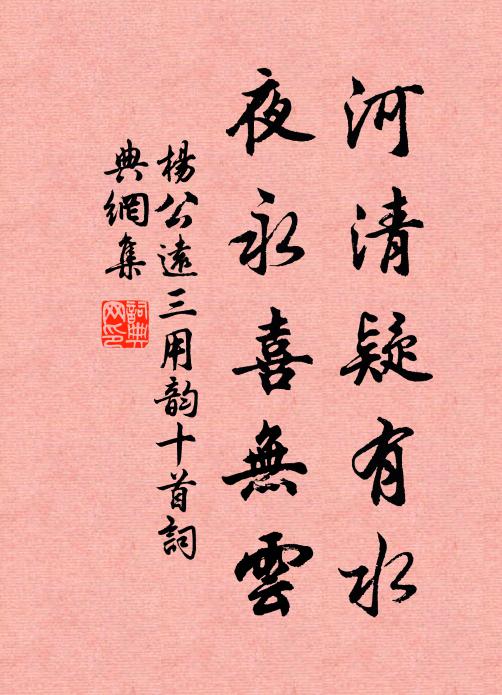 河清疑有水
夜永喜無雲
楊公遠三用韵十首詞
典網集
詞典
网印